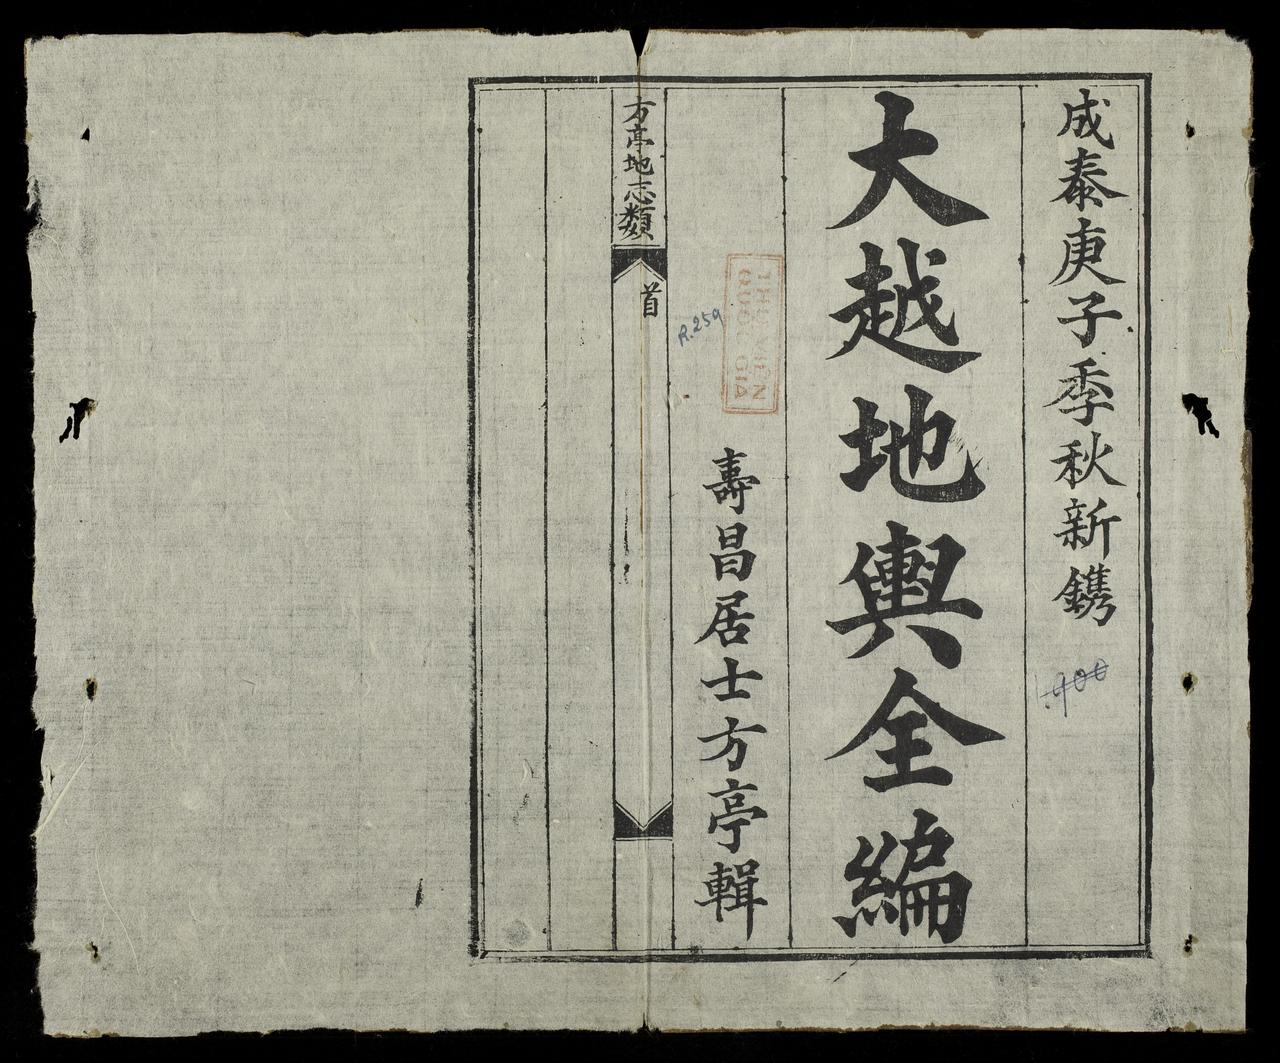 成泰庚子季秋新鐫
大越地輿全編
壽昌居士方亭輯
方亭地志類
首
THƯ VIỆN
QUỐC GIA
R.259
900